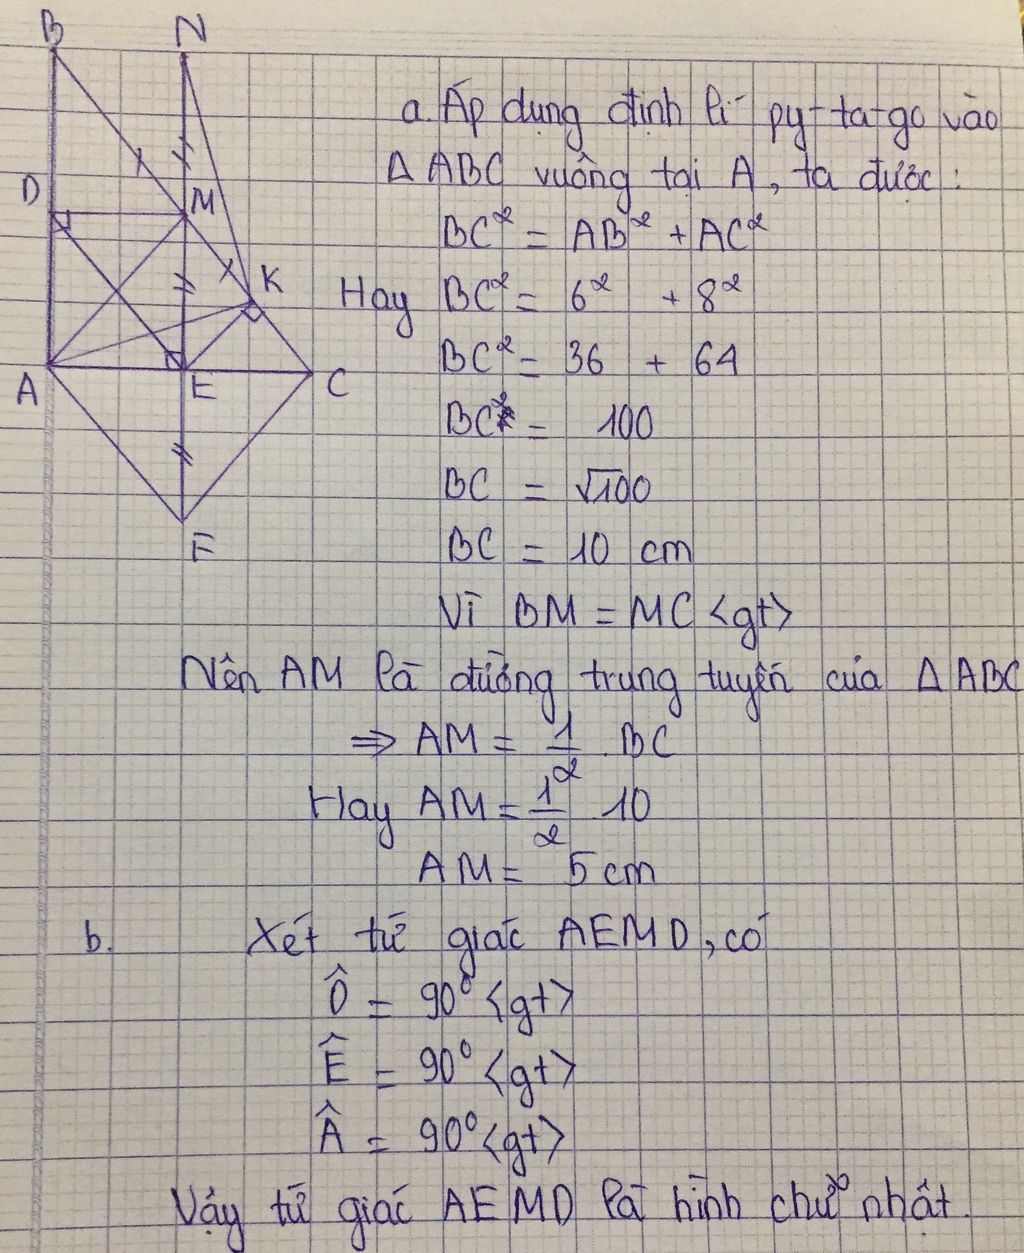 B N
D M
K
A E C
F
a. Áp dụng định lí py-ta-go vào
Δ ABC vuông tại A, ta được:
BC² = AB² + AC²
Hay BC² = 6² + 8²
BC² = 36 + 64
BC² = 100
BC = √100
BC = 10 cm
Vì BM = MC <gt>
Nên AM là đường trung tuyến của Δ ABC
⇒ AM = 1/2 . BC
Hay AM = 1/2 10
AM = 5 cm
b. Xét tứ giác AEMD, có
D̂ = 90° <gt>
Ê = 90° <gt>
Â = 90° <gt>
Vậy tứ giác AEMD là hình chữ nhật.